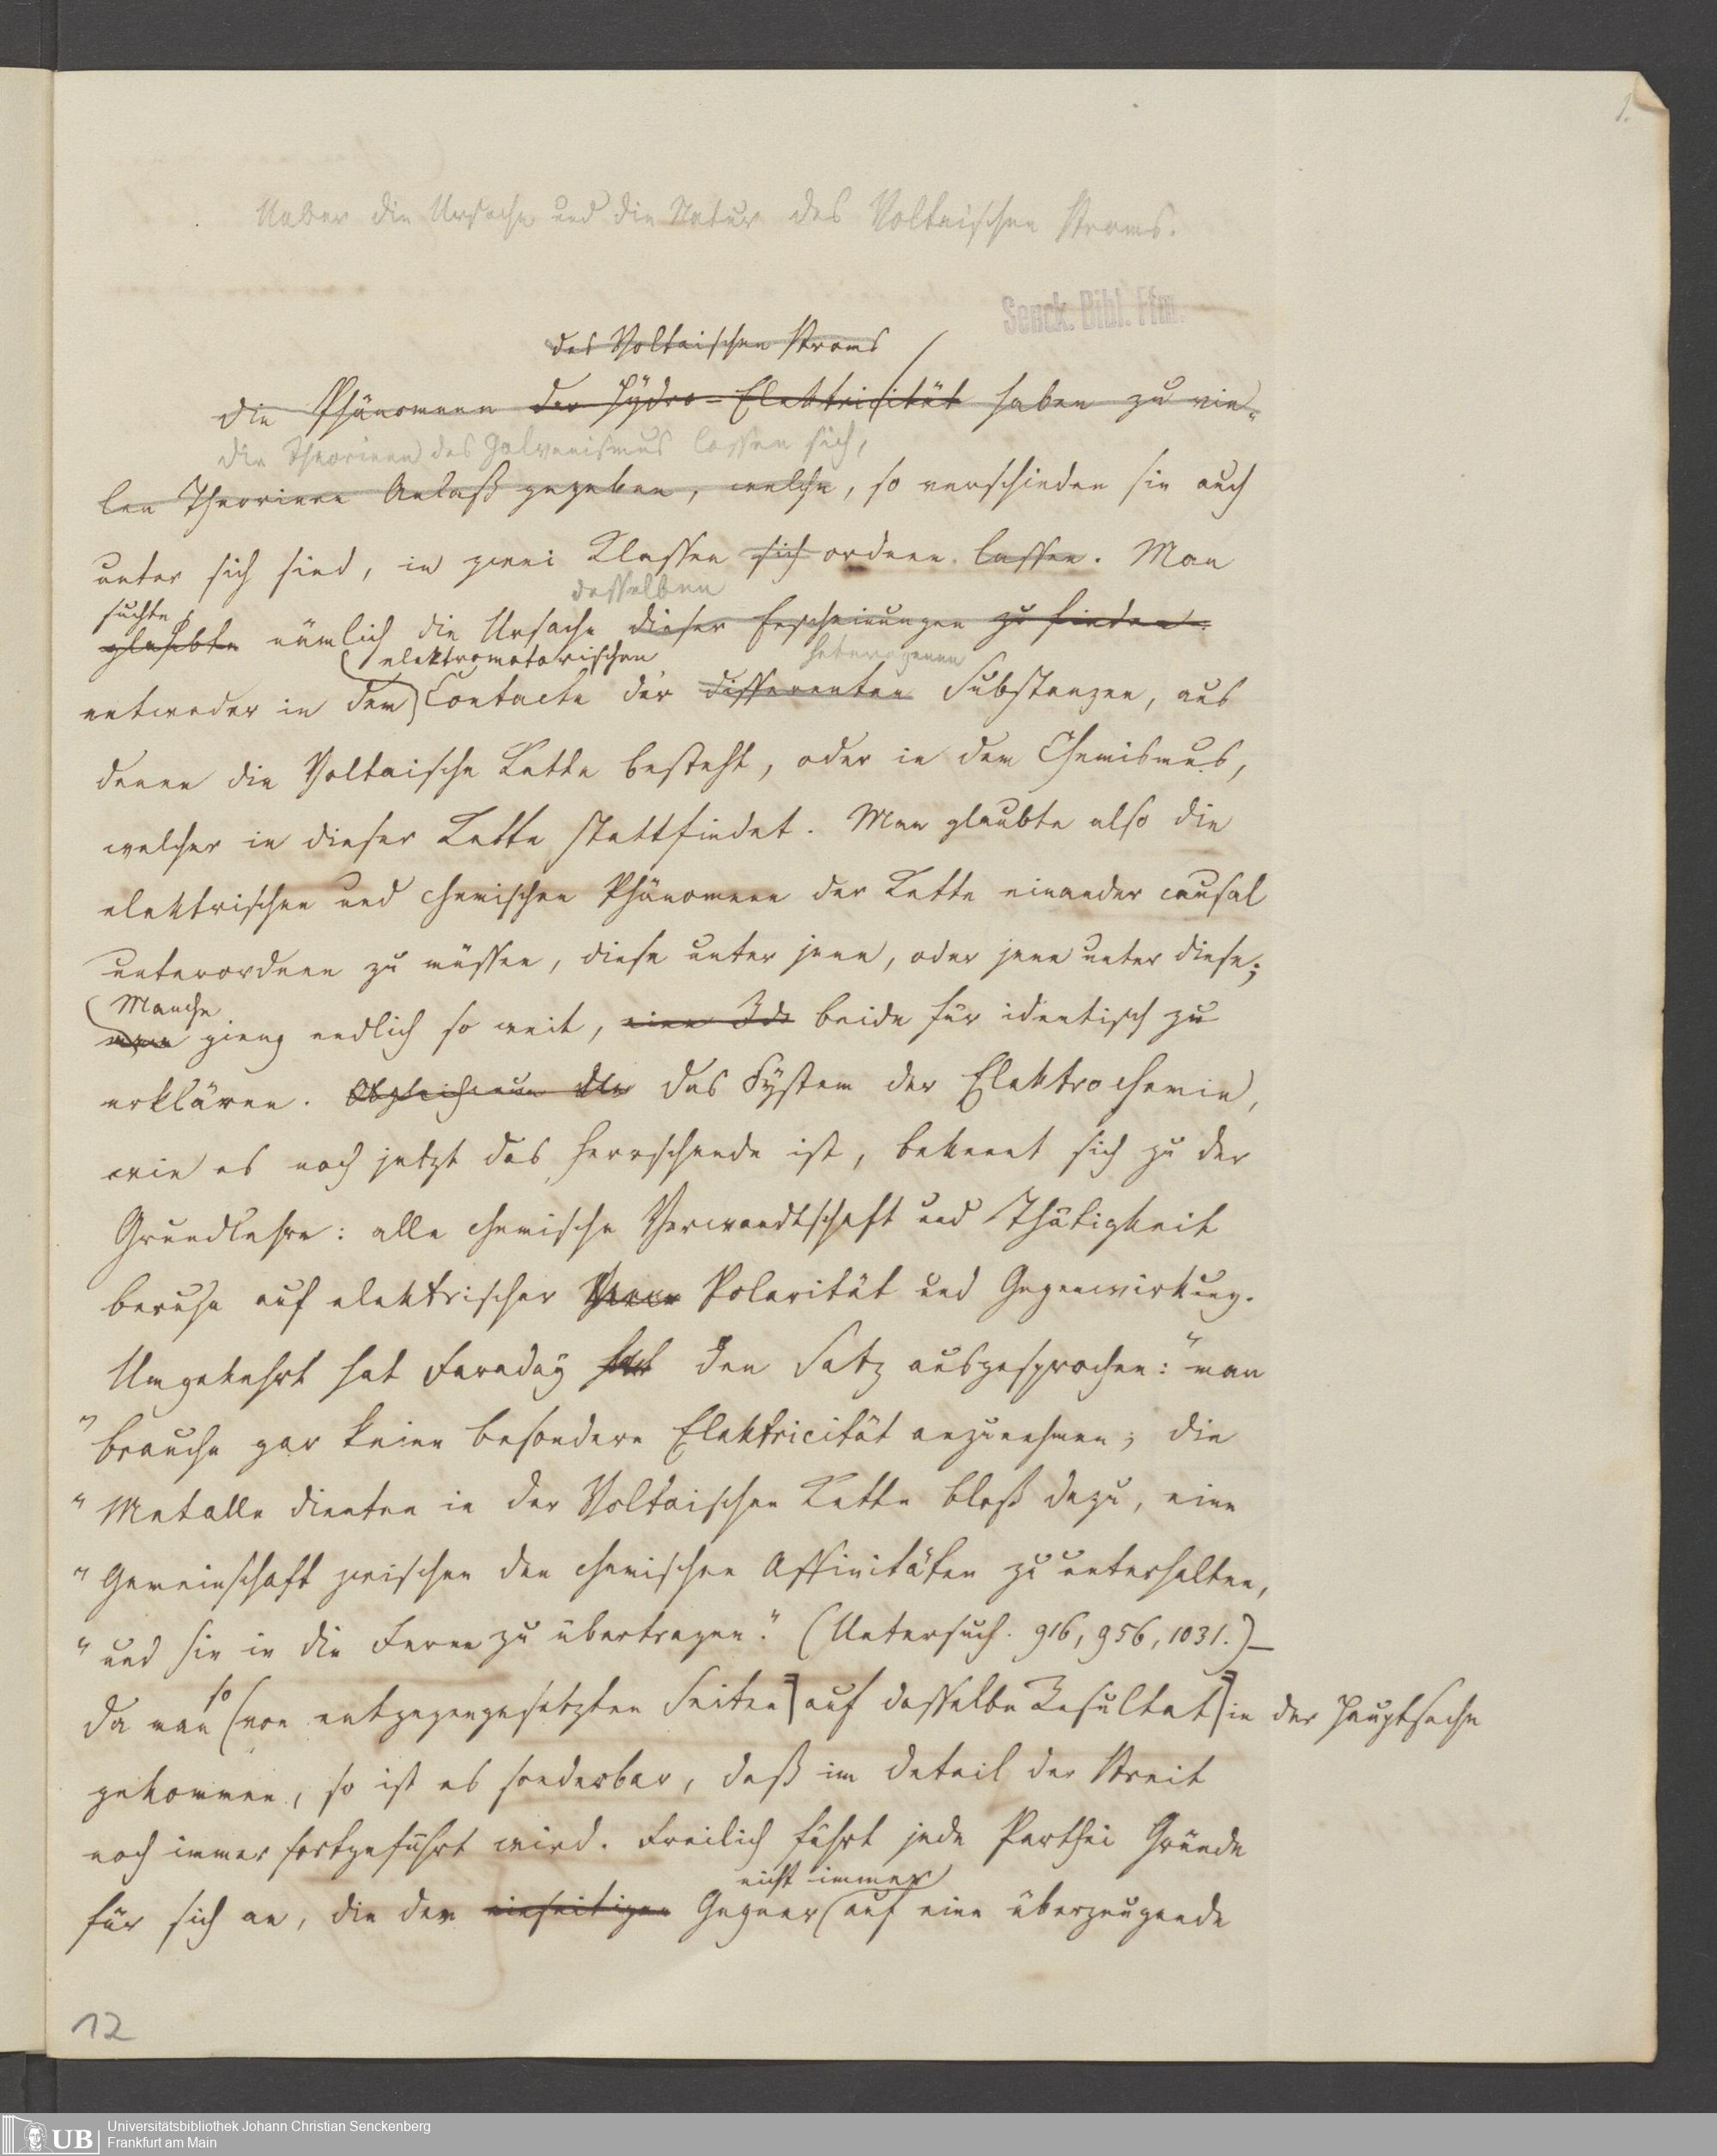 1.
Ueber die Ursache und die Natur des Voltaischen Stroms.
Senck. Bibl. Ffm.
des Voltaischen Stroms
Die Phänomene der Hydro-Elektricität haben zu vie-
Die Theorieen des Galvanismus lassen sich,
len Theorieen Anlaß gegeben, welche, so verschieden sie auch
unter sich sind, in zwei Klassen sich ordnen lassen. Man
desselben
suchte
glaubte nämlich die Ursache dieser Erscheinungen zu finden
elektromotorischen heterogenen
entweder in dem Contacte der differenten Substanzen, aus
denen die Voltaische Kette besteht, oder in dem Chemismus,
welcher in dieser Kette stattfindet. Man glaubte also die
elektrischen und chemischen Phänomene der Kette einander causal
unterordnen zu müssen, diese unter jene, oder jene unter diese;
Manche
man gieng endlich so weit, eine Ide beide für identisch zu
erklären. Obgleich nun die das System der Elektrochemie,
wie es noch jetzt das herrschende ist, bekennt sich zu der
Grundlehre: alle chemische Verwandtschaft und Thätigkeit
beruhe auf elektrischer Polarität und Gegenwirkung.
Umgekehrt hat Faraday hat den Satz ausgesprochen: "man
" brauche gar keine besondere Elektricität anzunehmen; die
" Metalle dienten in der Voltaischen Kette bloß dazu, eine
" Gemeinschaft zwischen den chemischen Affinitäten zu unterhalten,
" und sie in die Ferne zu übertragen." (Untersuch. 916, 956, 1031.) —
so
Da man von entgegengesetzten Seiten auf dasselbe Resultat in der Hauptsache
gekommen, so ist es sonderbar, daß im Detail der Streit
noch immer fortgeführt wird. Freilich führt jede Parthei Gründe
nicht immer
für sich an, die den einseitigen Gegner auf eine überzeugende
12
UB
Universitätsbibliothek Johann Christian Senckenberg
Frankfurt am Main